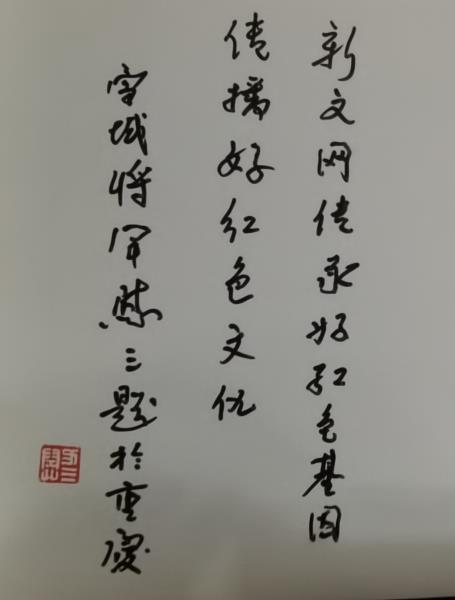 新文网传承好红色基因
传播好红色文化
将军陈三题於重庆